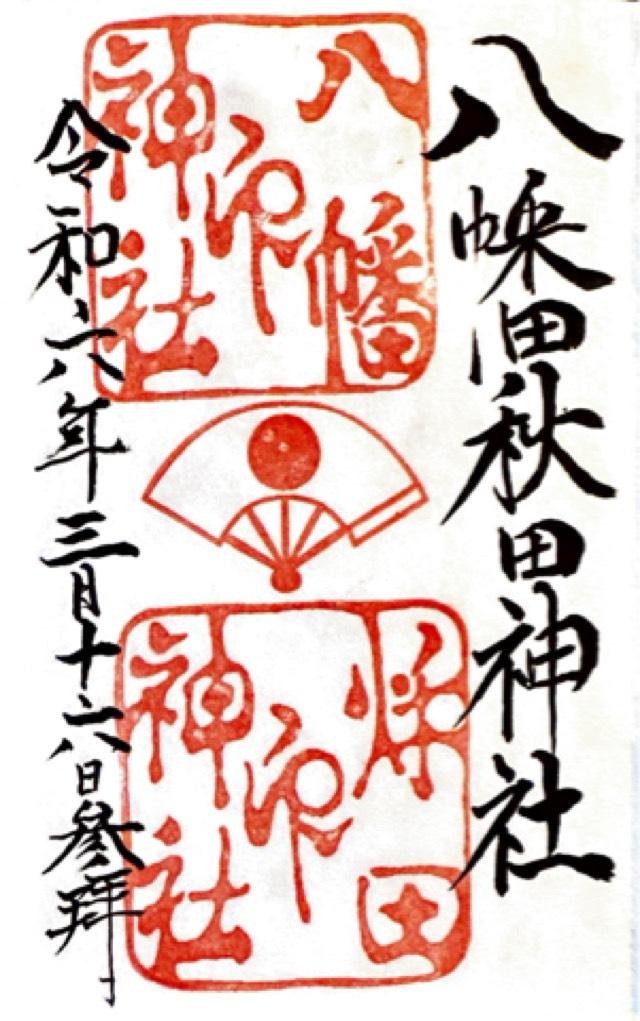 八幡秋田神社
八幡
印
神社
秋田
印
神社
令和六年三月十六日參拝